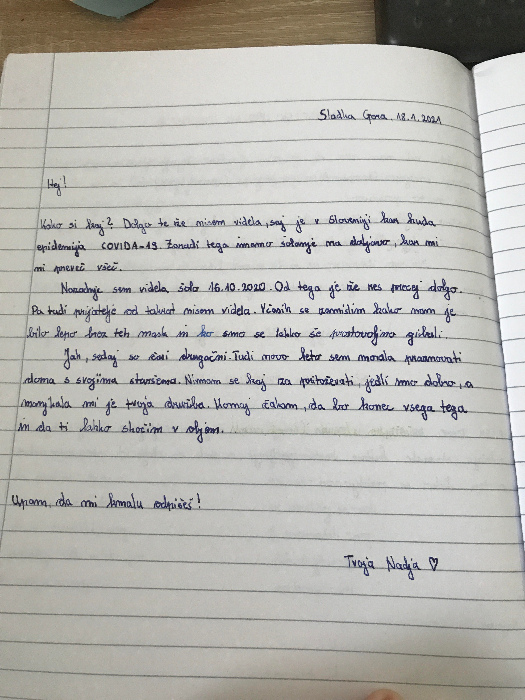 Sladka Gora, 18.1.2021
Hej!
Kako si kaj? Dolgo te že nisem videla, saj je v Sloveniji kar huda
epidemija COVIDA-19. Zaradi tega imamo šolanje na daljavo, kar mi
ni preveč všeč.
Nazadnje sem videla šolo 16.10.2020. Od tega je že res precej dolgo.
Pa tudi prijatelje od takrat nisem videla. Včasih se zamislim kako nam je
bilo lepo brez teh mask in ko smo se lahko še prostovoljno gibali.
Jah, sedaj so časi drugačni. Tudi novo leto sem morala praznovati
doma s svojima staršema. Nimam se kaj za pritoževati, jedli smo dobro, a
manjkala mi je tvoja družba. Komaj čakam, da bo konec vsega tega
in da ti lahko skočim v objem.
Upam, da mi kmalu odpišeš!
Tvoja Nadja ♡